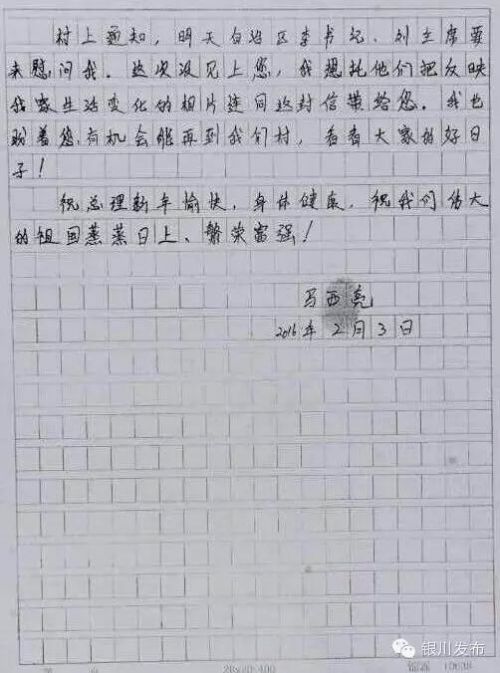 村上通知，明天自治区李书记、刘主席要
来慰问我。这次没见上您，我想托他们把反映
我家生活变化的相片连同这封信带给您。我也
盼着您有机会能再到我们村，看看大家的好日
子！
祝总理新年愉快，身体健康，祝我们伟大
的祖国蒸蒸日上、繁荣富强！
马西亮
2016年2月3日
银川发布